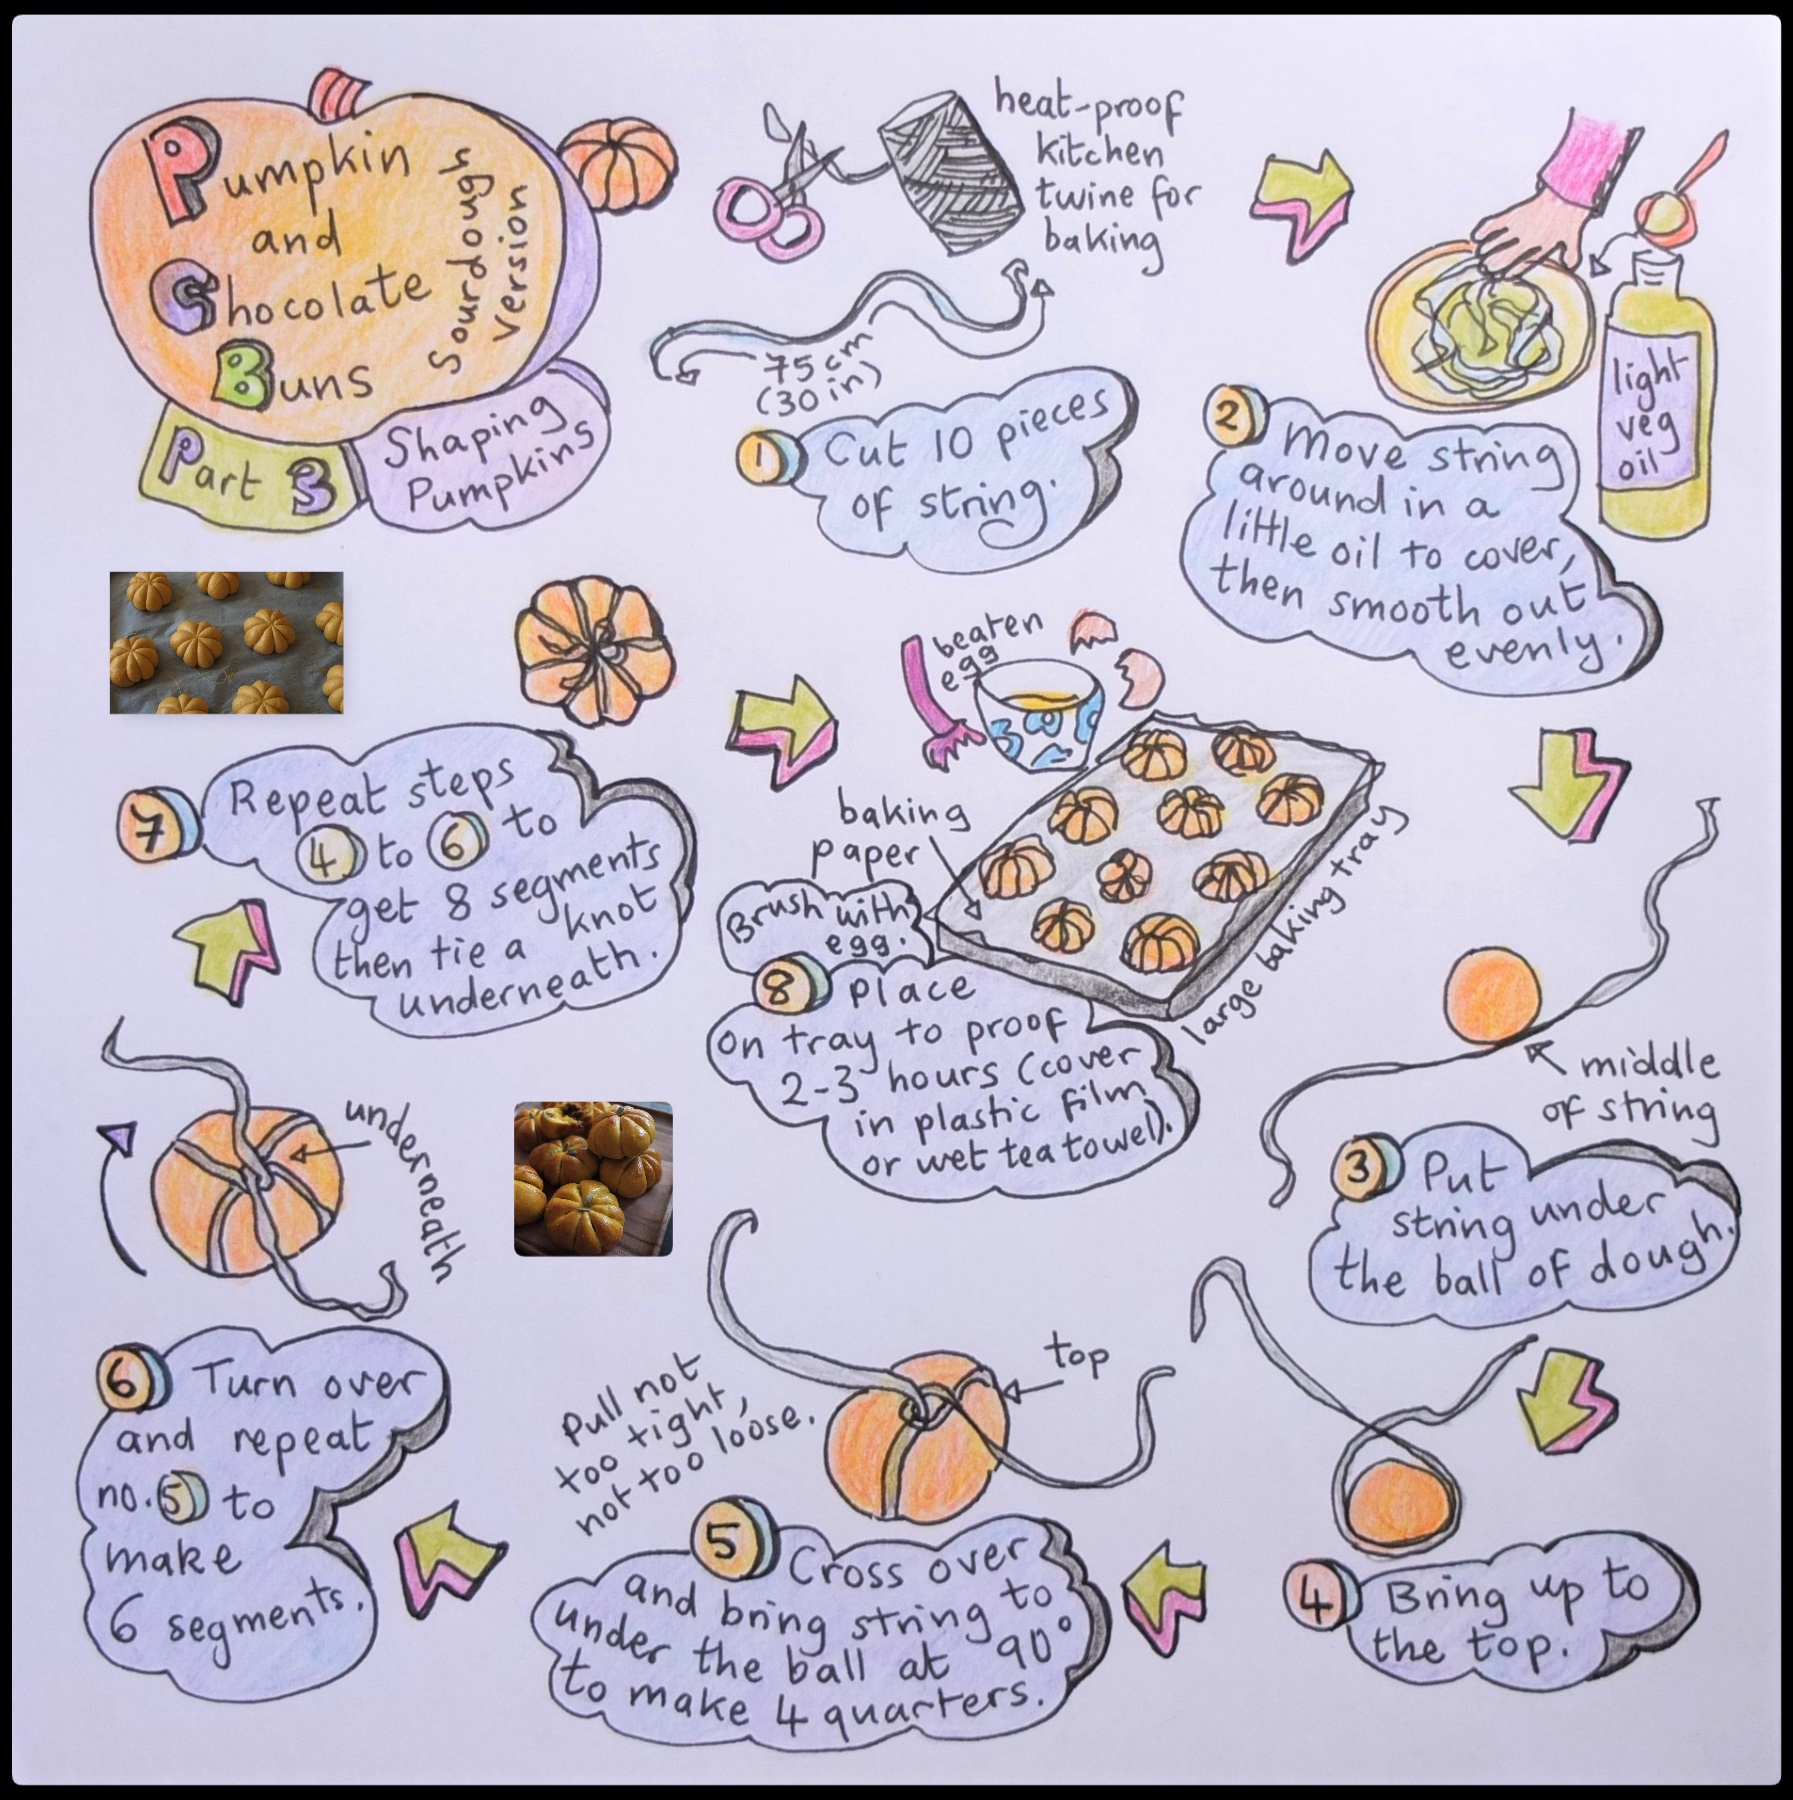 Pumpkin
and
Chocolate
Buns
Sourdough
Version
Part 3
Shaping
Pumpkins
heat-proof
kitchen
twine for
baking
75 cm
(30 in)
1 Cut 10 pieces
of string.
light
veg
oil
2 Move string
around in a
little oil to cover,
then smooth out
evenly.
middle
of string
3 Put
string under
the ball of dough.
4 Bring up to
the top.
top
Pull not
too tight,
not too loose.
5 Cross over
and bring string to
under the ball at 90°
to make 4 quarters.
underneath
6 Turn over
and repeat
no. 5 to
make
6 segments.
7 Repeat steps
4 to 6 to
get 8 segments
then tie a knot
underneath.
beaten
egg
baking
paper
large baking tray
Brush with
egg.
8 Place
on tray to proof
2-3 hours (cover
in plastic film
or wet tea towel).